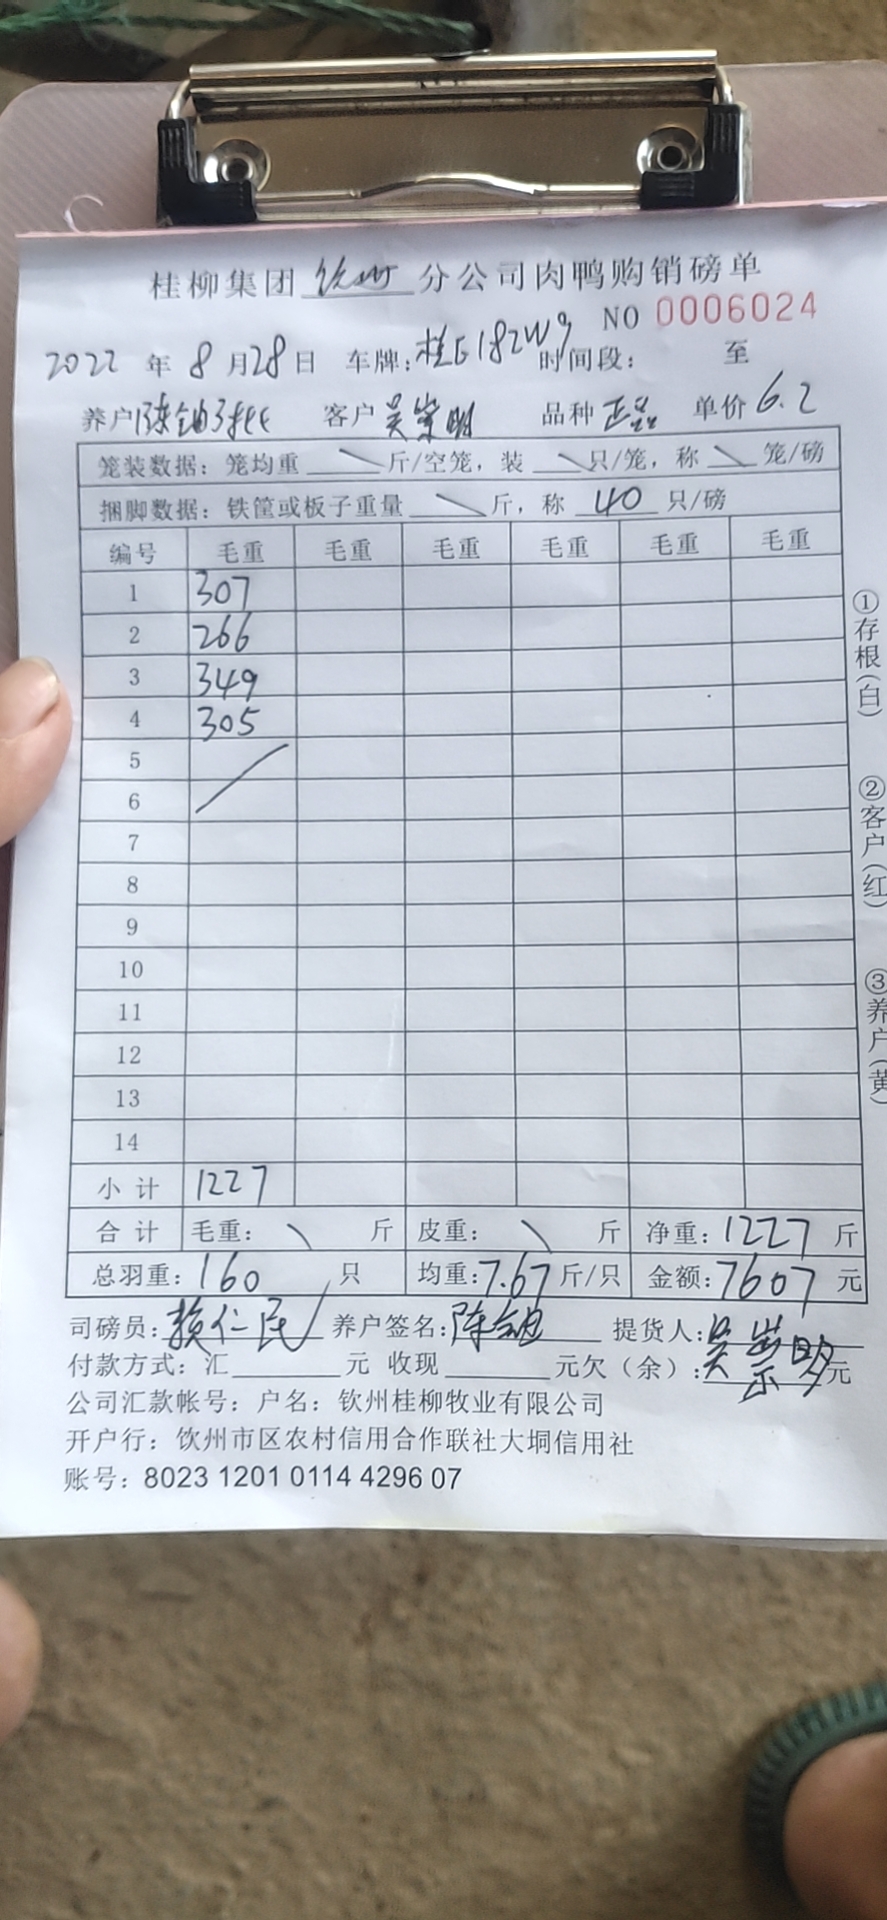 桂柳集团 钦州 分公司肉鸭购销磅单
NO 0006024
2022 年 8 月 28 日 车牌: 时间段: 至
养户 客户 吴崇明 品种 正品 单价 6.2
笼装数据: 笼均重 \ 斤/空笼, 装 \ 只/笼, 称 \ 笼/磅
捆脚数据: 铁筐或板子重量 \ 斤, 称 40 只/磅
编号 毛重 毛重 毛重 毛重 毛重 毛重
1 307
2 266
3 349
4 305
5
6
7
8
9
10
11
12
13
14
小 计 1227
合 计 毛重: \ 斤 皮重: \ 斤 净重: 1227 斤
总羽重: 160 只 均重: 7.67 斤/只 金额: 7607 元
司磅员: 赖仁民 养户签名: 提货人: 吴崇明
付款方式: 汇 元 收现 元欠(余): 元
公司汇款帐号: 户名: 钦州桂柳牧业有限公司
开户行: 饮州市区农村信用合作联社大垌信用社
账号: 8023 1201 0114 4296 07
①存根(白)
②客户(红)
③养户(黄)